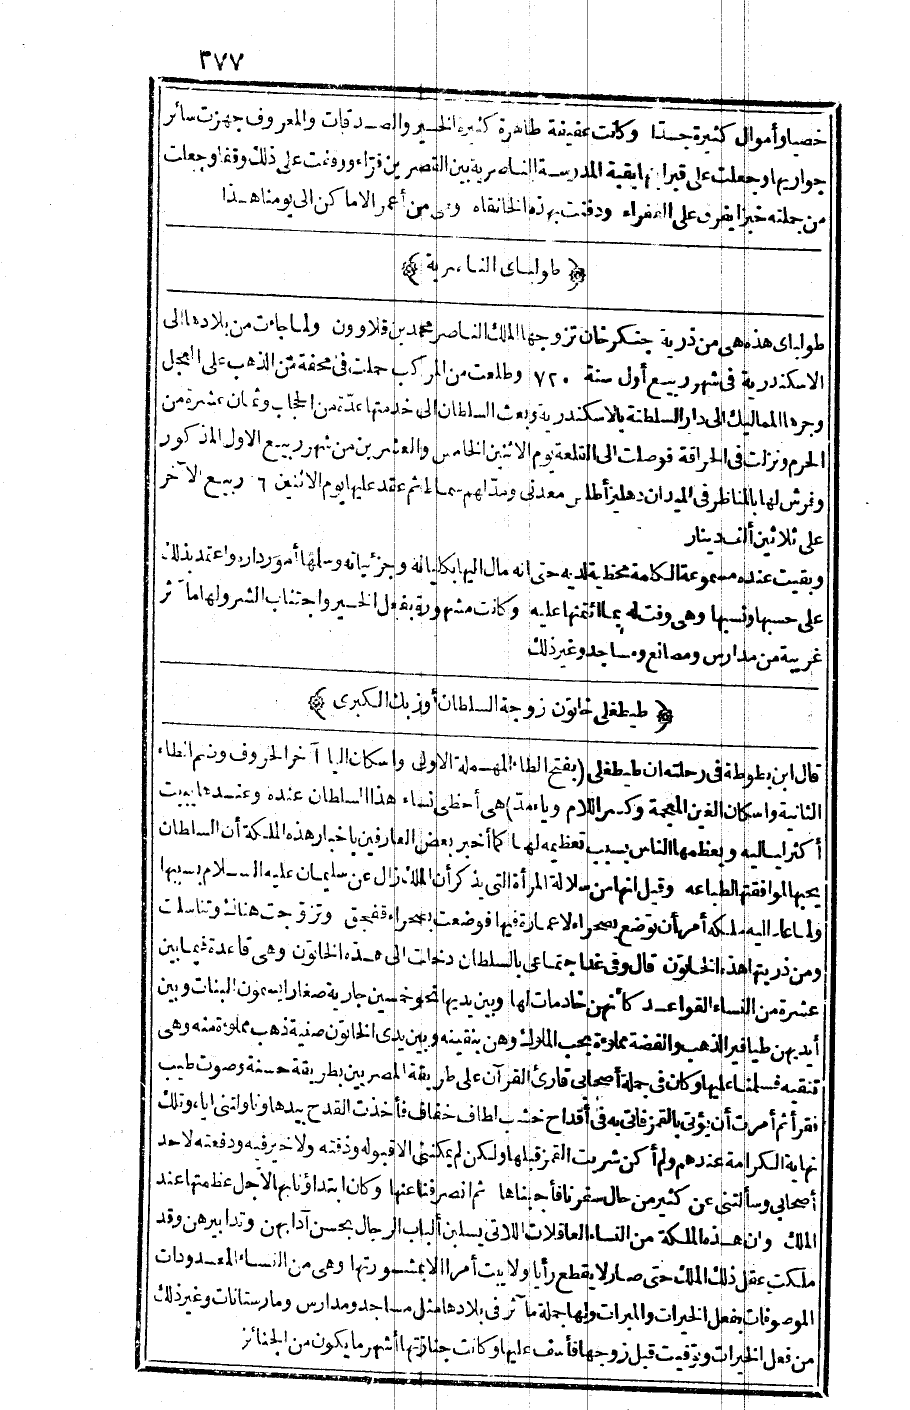 ٣٧٧
خصيا وأموال كثيرة جدّا وكانت عفيفة طاهرة كثيرة الخير والصدقات والمعروف جهزت سائر
جواريها وجعلت على قبر ابنها بقبة المدرسة الناصرية بين القصرين قرّاء ووقفت على ذلك وقفا وجعلت
من جملته خبزا يفرق على الفقراء ودفنت بهذه الخانقاه وهى من أعمر الاماكن الى يومنا هذا
﴿ طولباى الناصرية ﴾
طولباى هذه هى من ذرية جنكزخان تزوجها الملك الناصر محمد بن قلاوون ولما جاءت من بلادها الى
الاسكندرية فى شهر ربيع أول سنة ٧٢٠ وطلعت من المركب حملت فى محفة من الذهب على العجل
وجرها المماليك الى دار السلطنة بالاسكندرية وبعث السلطان الى خدمتها عدّة من الحجاب وثمان عشرة من
الحرم ونزلت فى الحراقة فوصلت الى القلعة يوم الاثنين الخامس والعشرين من شهر ربيع الاول المذكور
وفرش لها بالمناظر فى الميدان دهليز أطلس معدنى ومدّ لهم سماط ثم عقد عليها يوم الاثنين ٦ ربيع الآخر
على ثلاثين ألف دينار
وبقيت عنده مسموعة الكلمة محظية لديه حتى انه مال اليها بكلياته وجزئياته وسلمها أمور داره واعتمد بذلك
على حسبها ونسبها وهى وفت له بما ائتمنها عليه وكانت مشهورة بفعل الخير واجتناب الشر ولها مآثر
غريبة من مدارس ومصانع ومساجد وغير ذلك
﴿ طيطغلى خاتون زوجة السلطان أوزبك الكبرى ﴾
قال ابن بطوطة فى رحلته ان طيطغلى (بفتح الطاء المهملة الاولى واسكان اليا آخر الحروف وضم الطاء
الثانية واسكان الغين المعجمة وكسر اللام وياء مد) هى أحظى نساء هذا السلطان عنده وعندها يبيت
أكثر لياليه ويعظمها الناس بسبب تعظيمه لها كما أخبر بعض العارفين باخبار هذه الملكة أن السلطان
يحبها لموافقتها لطباعه وقيل انها من سلالة المرأة التى يذكر أن الملك زال عن سليمان عليه السلام بسببها
ولما عاد اليه ملكه أمر أن توضع بصحراء لا عمارة فيها فوضعت بصحراء قفجق وتزوجت هناك وتناسلت
ومن ذريتها هذه الخاتون قال وفى غد اجتماعى بالسلطان دخلت الى هذه الخاتون وهى قاعدة فيما بين
عشرة من النساء القواعد كأنهن خادمات لها وبين يديها نحو خمسين جارية صغارا يسمون البنات وبين
أيديهن طيافير الذهب والفضة مملوءة بحب الملوك وهن ينقينه وبين يدى الخاتون صنية ذهب مملوءة منه وهى
تنقيه فسلمنا عليها وكان فى جملة أصحابى قارئ القرآن على طريقة المصريين بطريقة حسنة وصوت طيب
فقرأ ثم أمرت أن يؤتى بالقمز فأتى به فى أقداح خشب لطاف خفاف فأخذت القدح بيدها وناولتنى اياه وتلك
نهاية الكرامة عندهم ولم أكن شربت القمز قبلها ولكن لم يمكننى الا قبوله وذقته ولا خير فيه ودفعته لاحد
أصحابى وسألتنى عن كثير من حال سفرنا فأجبناها ثم انصرفنا عنها وكان ابتداؤنا بها لاجل عظمتها عند
الملك وان هذه الملكة من النساء العاقلات اللاتى يسلبن ألباب الرجال بحسن آدابهن وتدابيرهن وقد
ملكت عقل ذلك الملك حتى صار لا يقطع رأيا ولا يبت أمرا الا بمشورتها وهى من النساء المعدودات
الموصوفات بفعل الخيرات والمبرات ولها جملة مآثر فى بلادها مثل مساجد ومدارس ومارستانات وغير ذلك
من فعل الخيرات وتوفيت قبل زوجها فأسف عليها وكانت جنازتها أشهر ما يكون من الجنائز